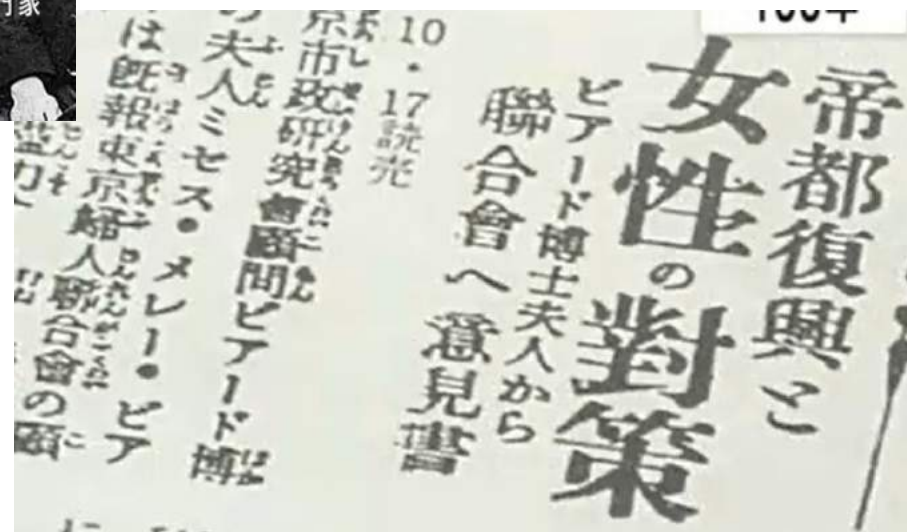 帝都復興と
女性の對策
ビアード博士夫人から
聯合會へ意見書
10・17読売
京市政研究會顧問ビアード博
の夫人ミセス・メレー・ビア
は既報東京婦人聯合會の顧